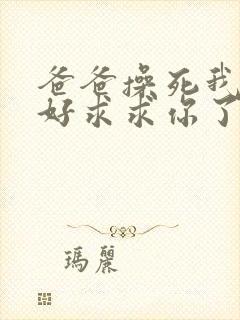 爸爸操死我
好求求你了
瑪麗